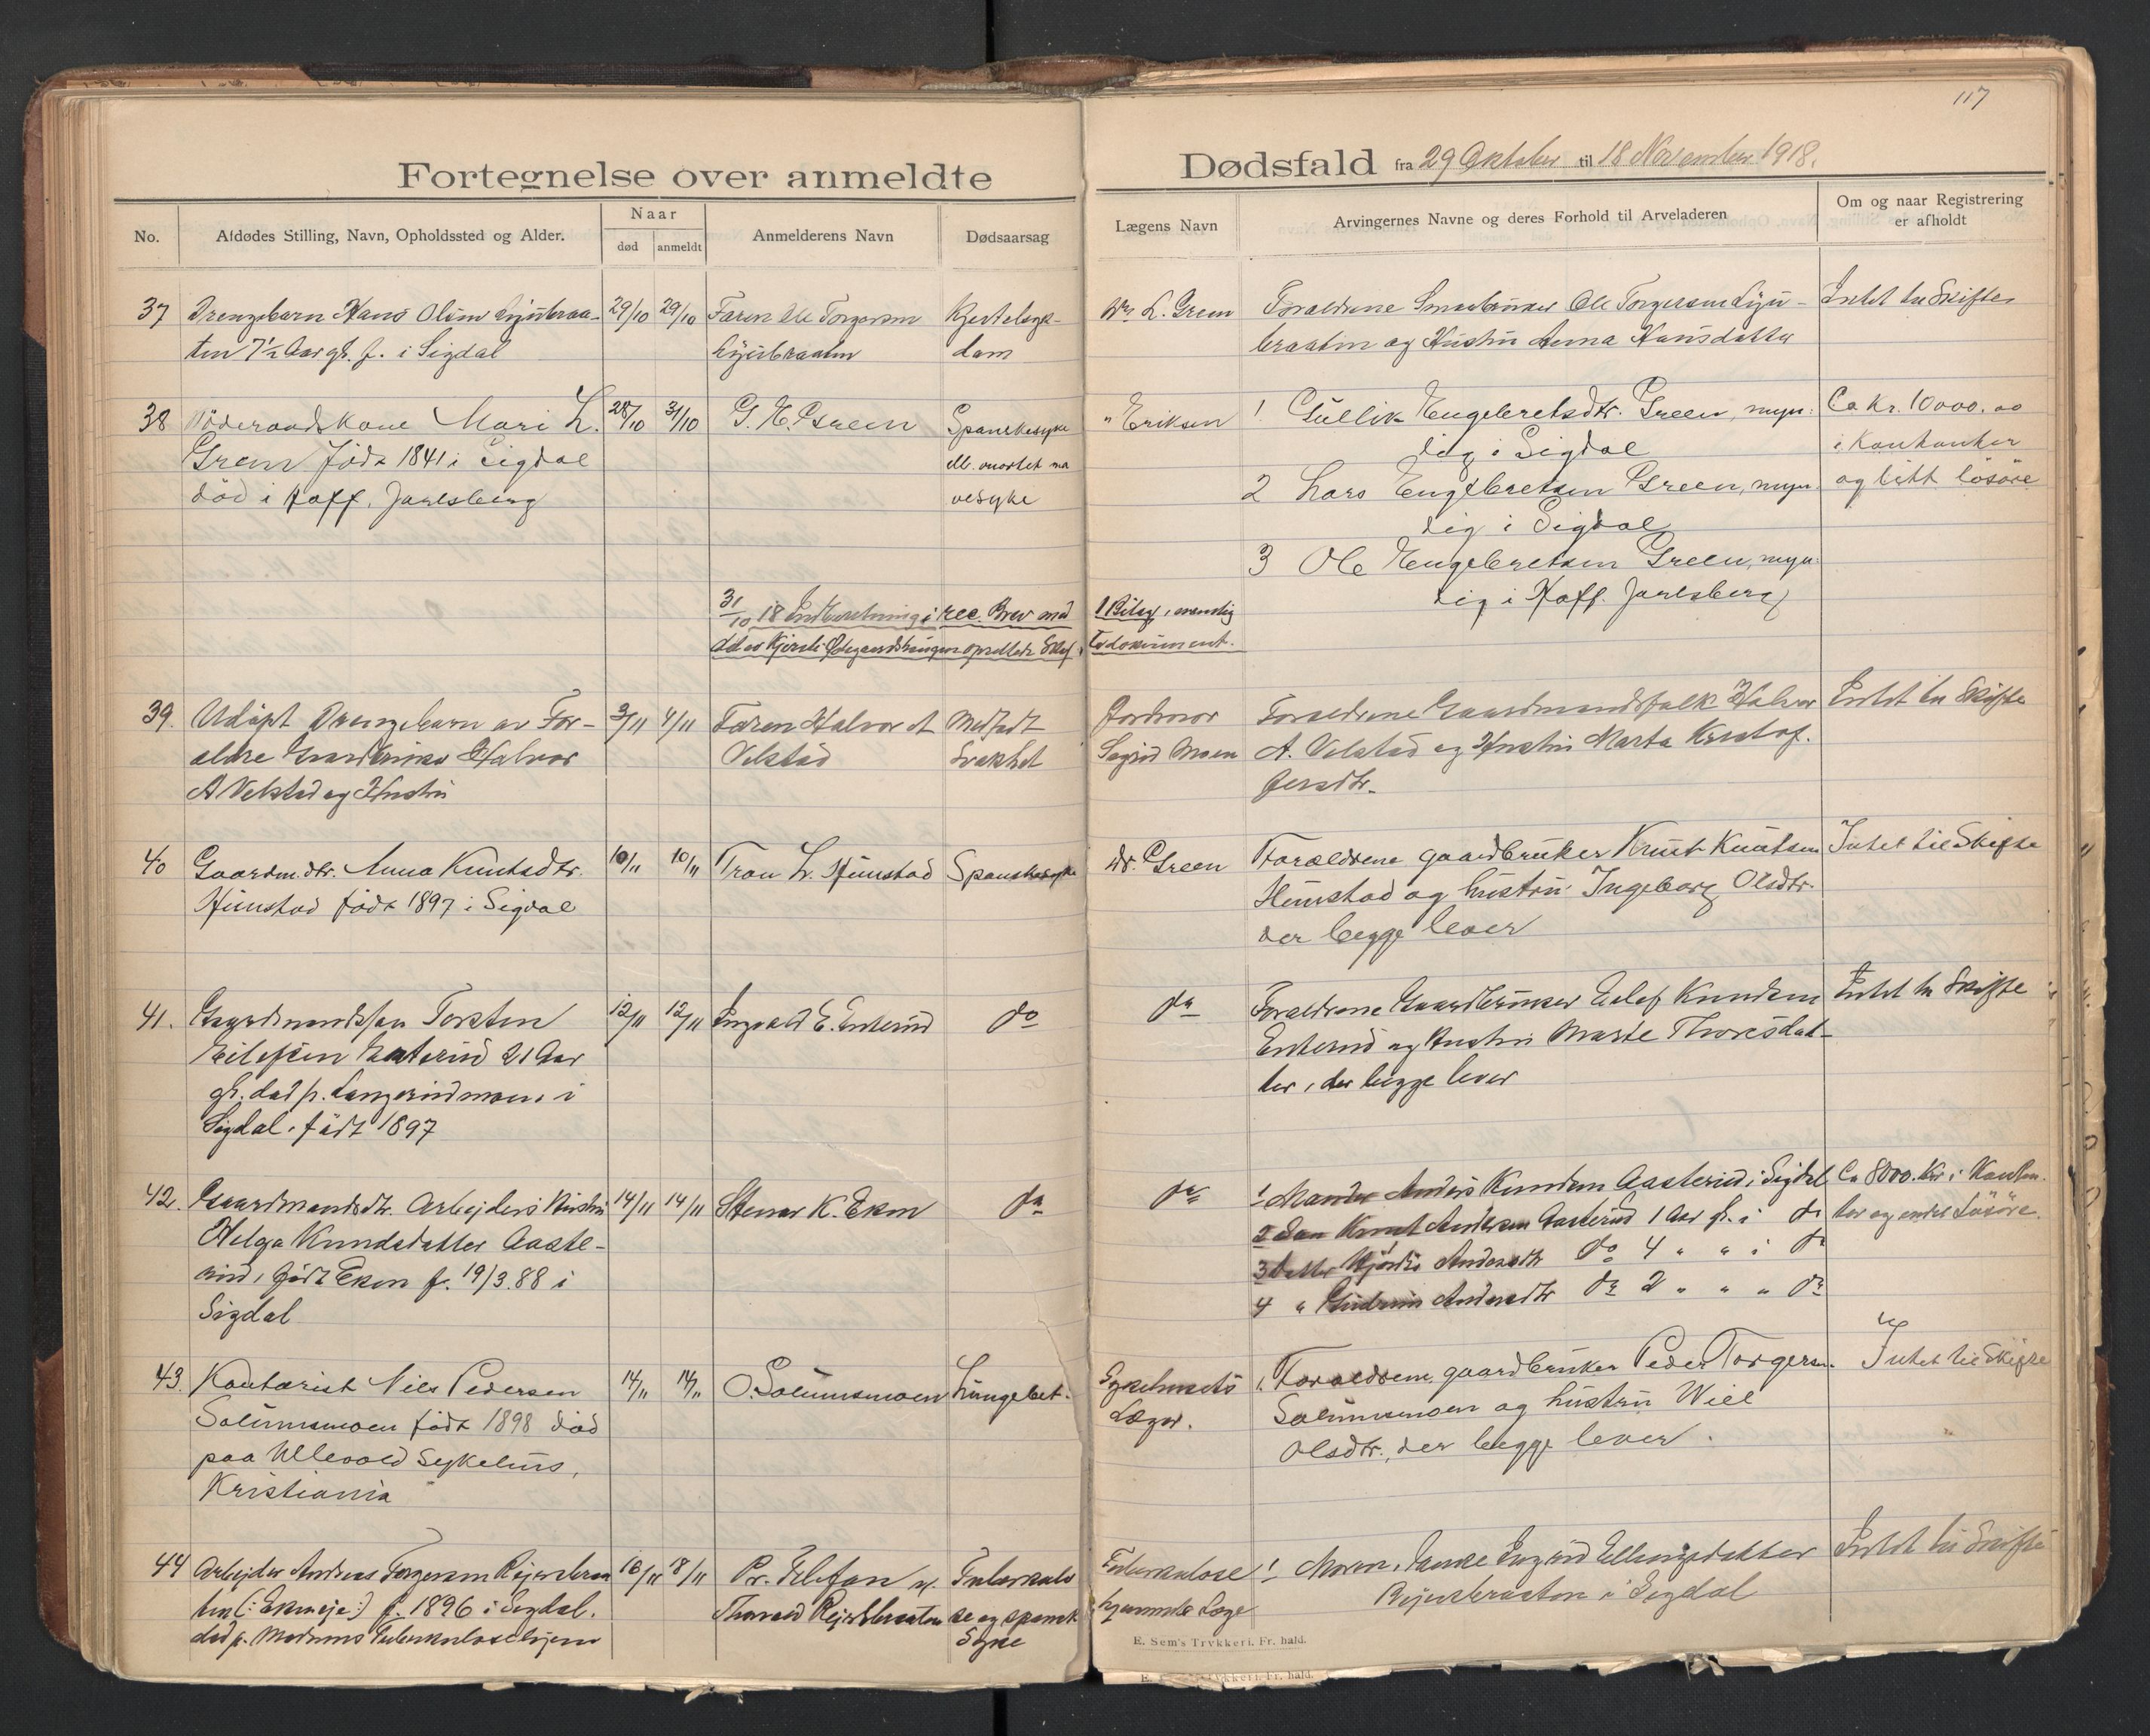 117
Fortegnelse over anmeldte
Dødsfald fra 29 Oktober til 18 November 1918.
No.
Afdødes Stilling, Navn, Opholdssted og Alder.
Naar
død
anmeldt
Anmelderens Navn
Dødsaarsag
Lægens Navn
Arvingernes Navne og deres Forhold til Arveladeren
Om og naar Registrering
er afholdt
37
Drengebarn Hans Olum
ten 7½ Aar gl. f. i Sigdal
29/10
29/10
Faren Ole Torgersen
Kjertelsyk-
dom
Dr. L. Green
Foraldrene Smaabruker Ole Torgersen
braaten og Hustru Anna Hansdatter
Intet til Skifte
38
Føderaadskone Mari L.
Green født 1841 i Sigdal
död i Hoff. Jarlsberg
28/10
31/10
G. E. Green
Spanskesyke
ell. ma
vesyke
" Eriksen
1 Gullik Engebretsdtr. Green, myn-
dig i Sigdal
2 Lars Engebretsen Green, myn-
dig i Sigdal
3 Ole Engebretsen Green, myn-
dig i Hoff. Jarlsberg
Ca Kr. 10000.00
i Kontanter
og litt løsöre
31/10 18 Indberetning i rec. Brev med
1 Bilag,
39.
Udöpt Drengebarn av For-
aldre Gaardbruker Halvor
A Velstad og Hustru
3/11
4/11
Faren Halvor A
Velstad
Medfødt
Svakhet
Jordmor
Sigrid Moen
Foraldrene Gaardmandsfolk Halvor
A. Velstad og Hustru Marta Kristof-
fersdtr.
Intet til Skifte
40
Gaardm.dtr. Anna Knutsdtr.
Hunstad född 1897 i Sigdal
10/11
10/11
Tron L. Hunstad
Spanskesyke
Dr. Green
Foraeldrene gaardbruker Knut Knutsen
Hunstad og hustru Ingeborg Olsdtr.
der begge lever
Intet til Skifte
41.
Gaardmandssøn Torsten
Eilefsen Enterud 21 Aar
gl. död p. i
Sigdal. född 1897
12/11
12/11
Ingvald E. Enterud
do
do
Foraldrene Gaardbruker Eilef Knudsen
Enterud og Hustru Marte Thoresdat-
ter, der begge lever
Intet til Skifte
42.
Gaardmandsdtr. Arbejders Hustru
Helga Knudsdatter Aaste-
rud, född Eken f. 19/3.88 i
Sigdal
14/11
14/11
Stener K. Eken
do
do
1 Manden Anders Knudsen Aasterud i Sigdal
2 Søn Knut Andersen Aasterud 1 Aar gl. i do
3 Datter Hjördis Andersdtr do 4 " " i do
4 " Gudrun Andersdtr do 2 " " " do
Ca 8000. Kr i Kontan-
ter og endel Løsöre.
43.
Kontorist Nils Pedersen
Solumsmoen född 1898 död
paa Ullevold Sykehus,
Kristiania
14/11
14/11
O. Solumsmoen
Lungebet.
Sykehusets
Læger.
1. Foraeldrene gaardbruker Peder Torgersen
Solumsmoen og hustru
Olsdtr., der begge lever.
Intet til Skifte
44
Arbejder Andreas Torgersen
ten (: Ekneje :) f. 1896 i Sigdal.
död p. Modums Tuberkulosehjem
16/11
18/11
Pr. Telefon av
Thorvald
Tuberkulo
se og spansk
Syke
Tuberkulose
hjemmets Læge
1 Moren, Enke Ingrid Ellingsdatter
i Sigdal
Intet til Skifte
E. Sem's Trykkeri, Fr. hald.